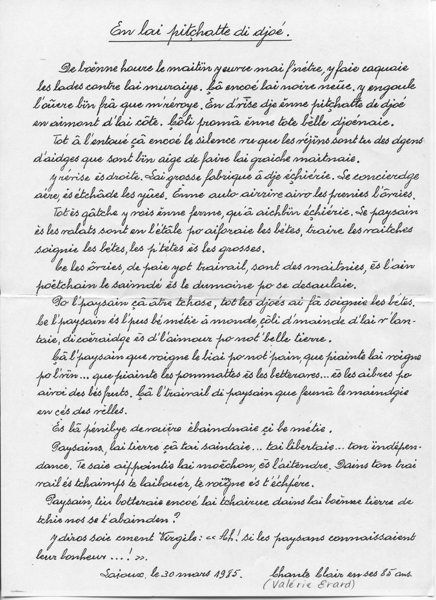 En lai pitçhatte di djoé.
De boènne houre le maitïn y euvre mai f'nétre, y faie caquaie
les lades contre lai muraiye. Çâ encoé lai noire neûe, y engoule
l'oûere bïn frâ que m'réroye. En d'rïse dje ènne pitçhatte de djoé
en aimont d'lai côte. Çoli promâ ènne tote bèlle djoénaie.
Tot â l'entoué çâ encoé le silence vu que les réjïns sont tu des dgens
d'aidges que sont bïn aige de faire lai graiche maitnaie.
y révise ès droite. Lai grosse fabrique â dje éçhiérie. Le concierdge
aivé, ès étchâde les yûes. Enne auto airrive aivo les premies l'ôvries.
Tot ès gâtche y vois ènne ferme, qu'â aichbïn éçhiérie. Le paysain
ès les valats sont en l'étâle po aiforaie les bétes, traire les vaitches
soignie les bétes, les p'tétes ès les grosses.
Ce les ôvries, de paie yot travail, sont des maitnies, ès l'aïn
poétchain le saimdé ès le dumoine po se desaulaie.
Po l'paysain çâ âtre tchose, tot les djoés ai fâ soignie les bétes.
Ce l'paysain ès l'pus bé métie â monde, çoli d'mainde d'lai v'lan-
taie, di coéraidge ès d'l'aimour po not' belle tierre.
Çâ l'paysain que voigne le biai po not' pain, que piainte lai voigne
po l'vïn... que piainte les pommattes ès les betteraves... ès les aibres po
aivoi des bés fruts. Çâ l'travail di paysain que feunâ le maindgie
en cés des villes.
Ès lâ pénibye de vouère ébaindnaie çi bé métie.
Paysains, lai tierre çâ tai saintaie... tai libertaie... ton indépen-
dance. Te saie aippointie lai moéchon, ès l'aitendre. Dains ton trai
vail ès tchaimps te laibouèr, te voigne ès t'éçhpére.
Paysain, tiu botterais encoé lai tchairue dains lai boènne tierre de
tchie nos se t'abainden?
Y diros soie cment Virgile: «Ah! si les paysans connaissaient
leur bonheur...!».
Lajoux, le 30 mars 1985. Chante Clair en ses 85 ans.
(Valérie Erard)